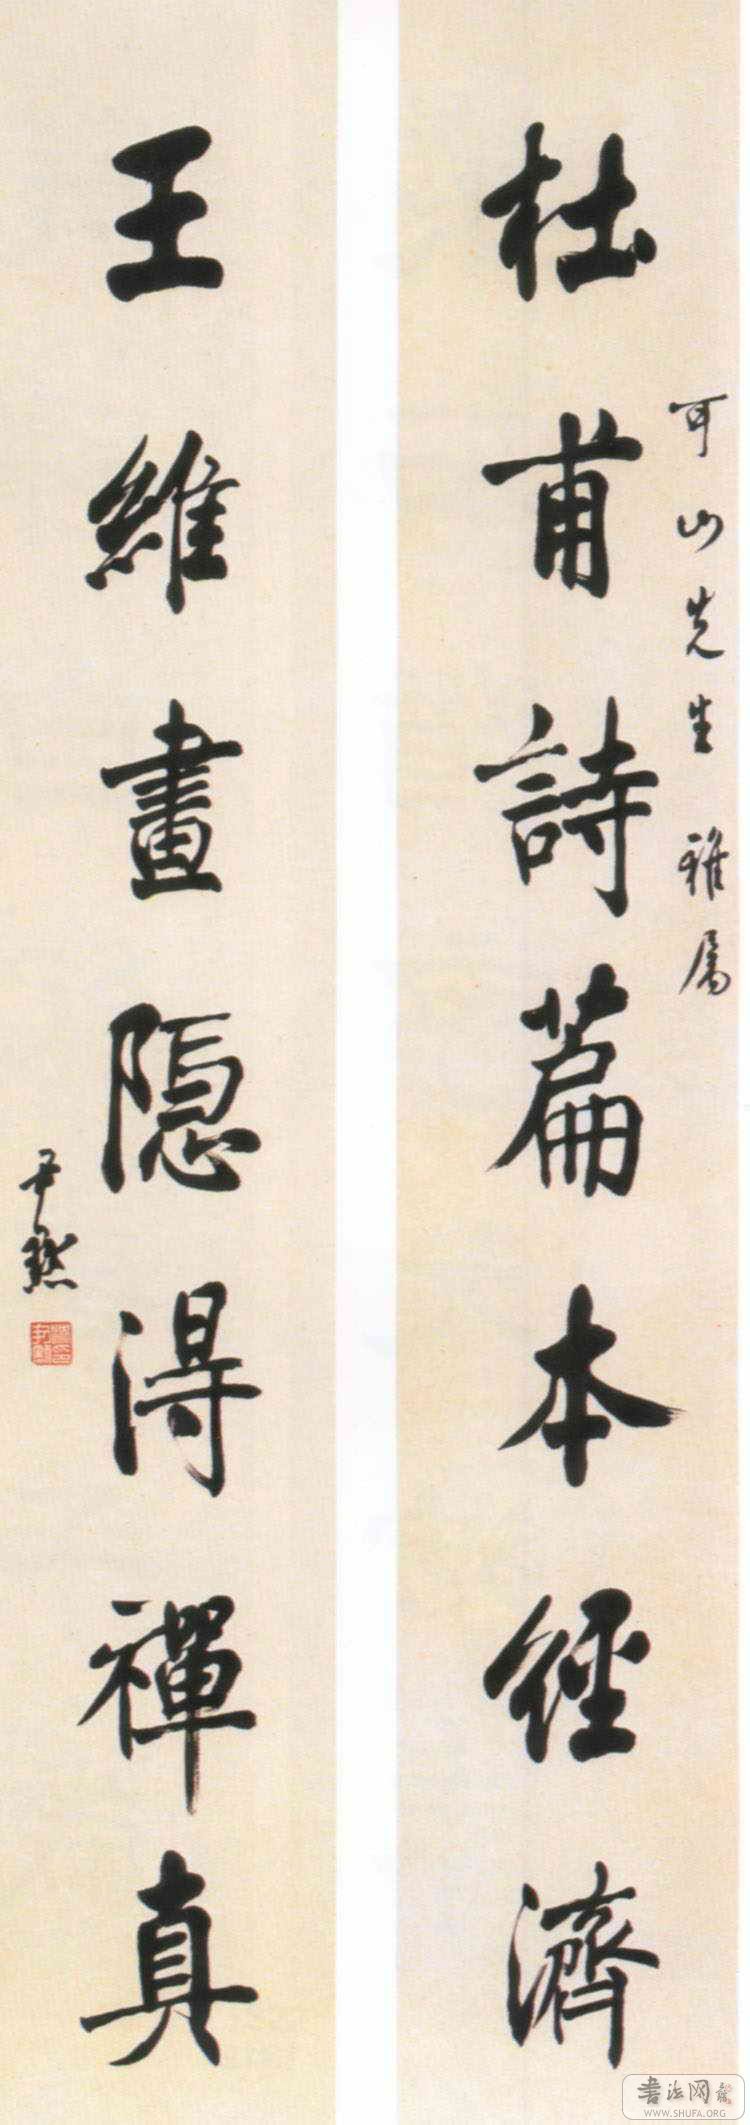 杜甫詩篇本經濟
可山先生雅属
王維畫隱得禪真
尹默
書法网
WWW.SHUFA.ORG